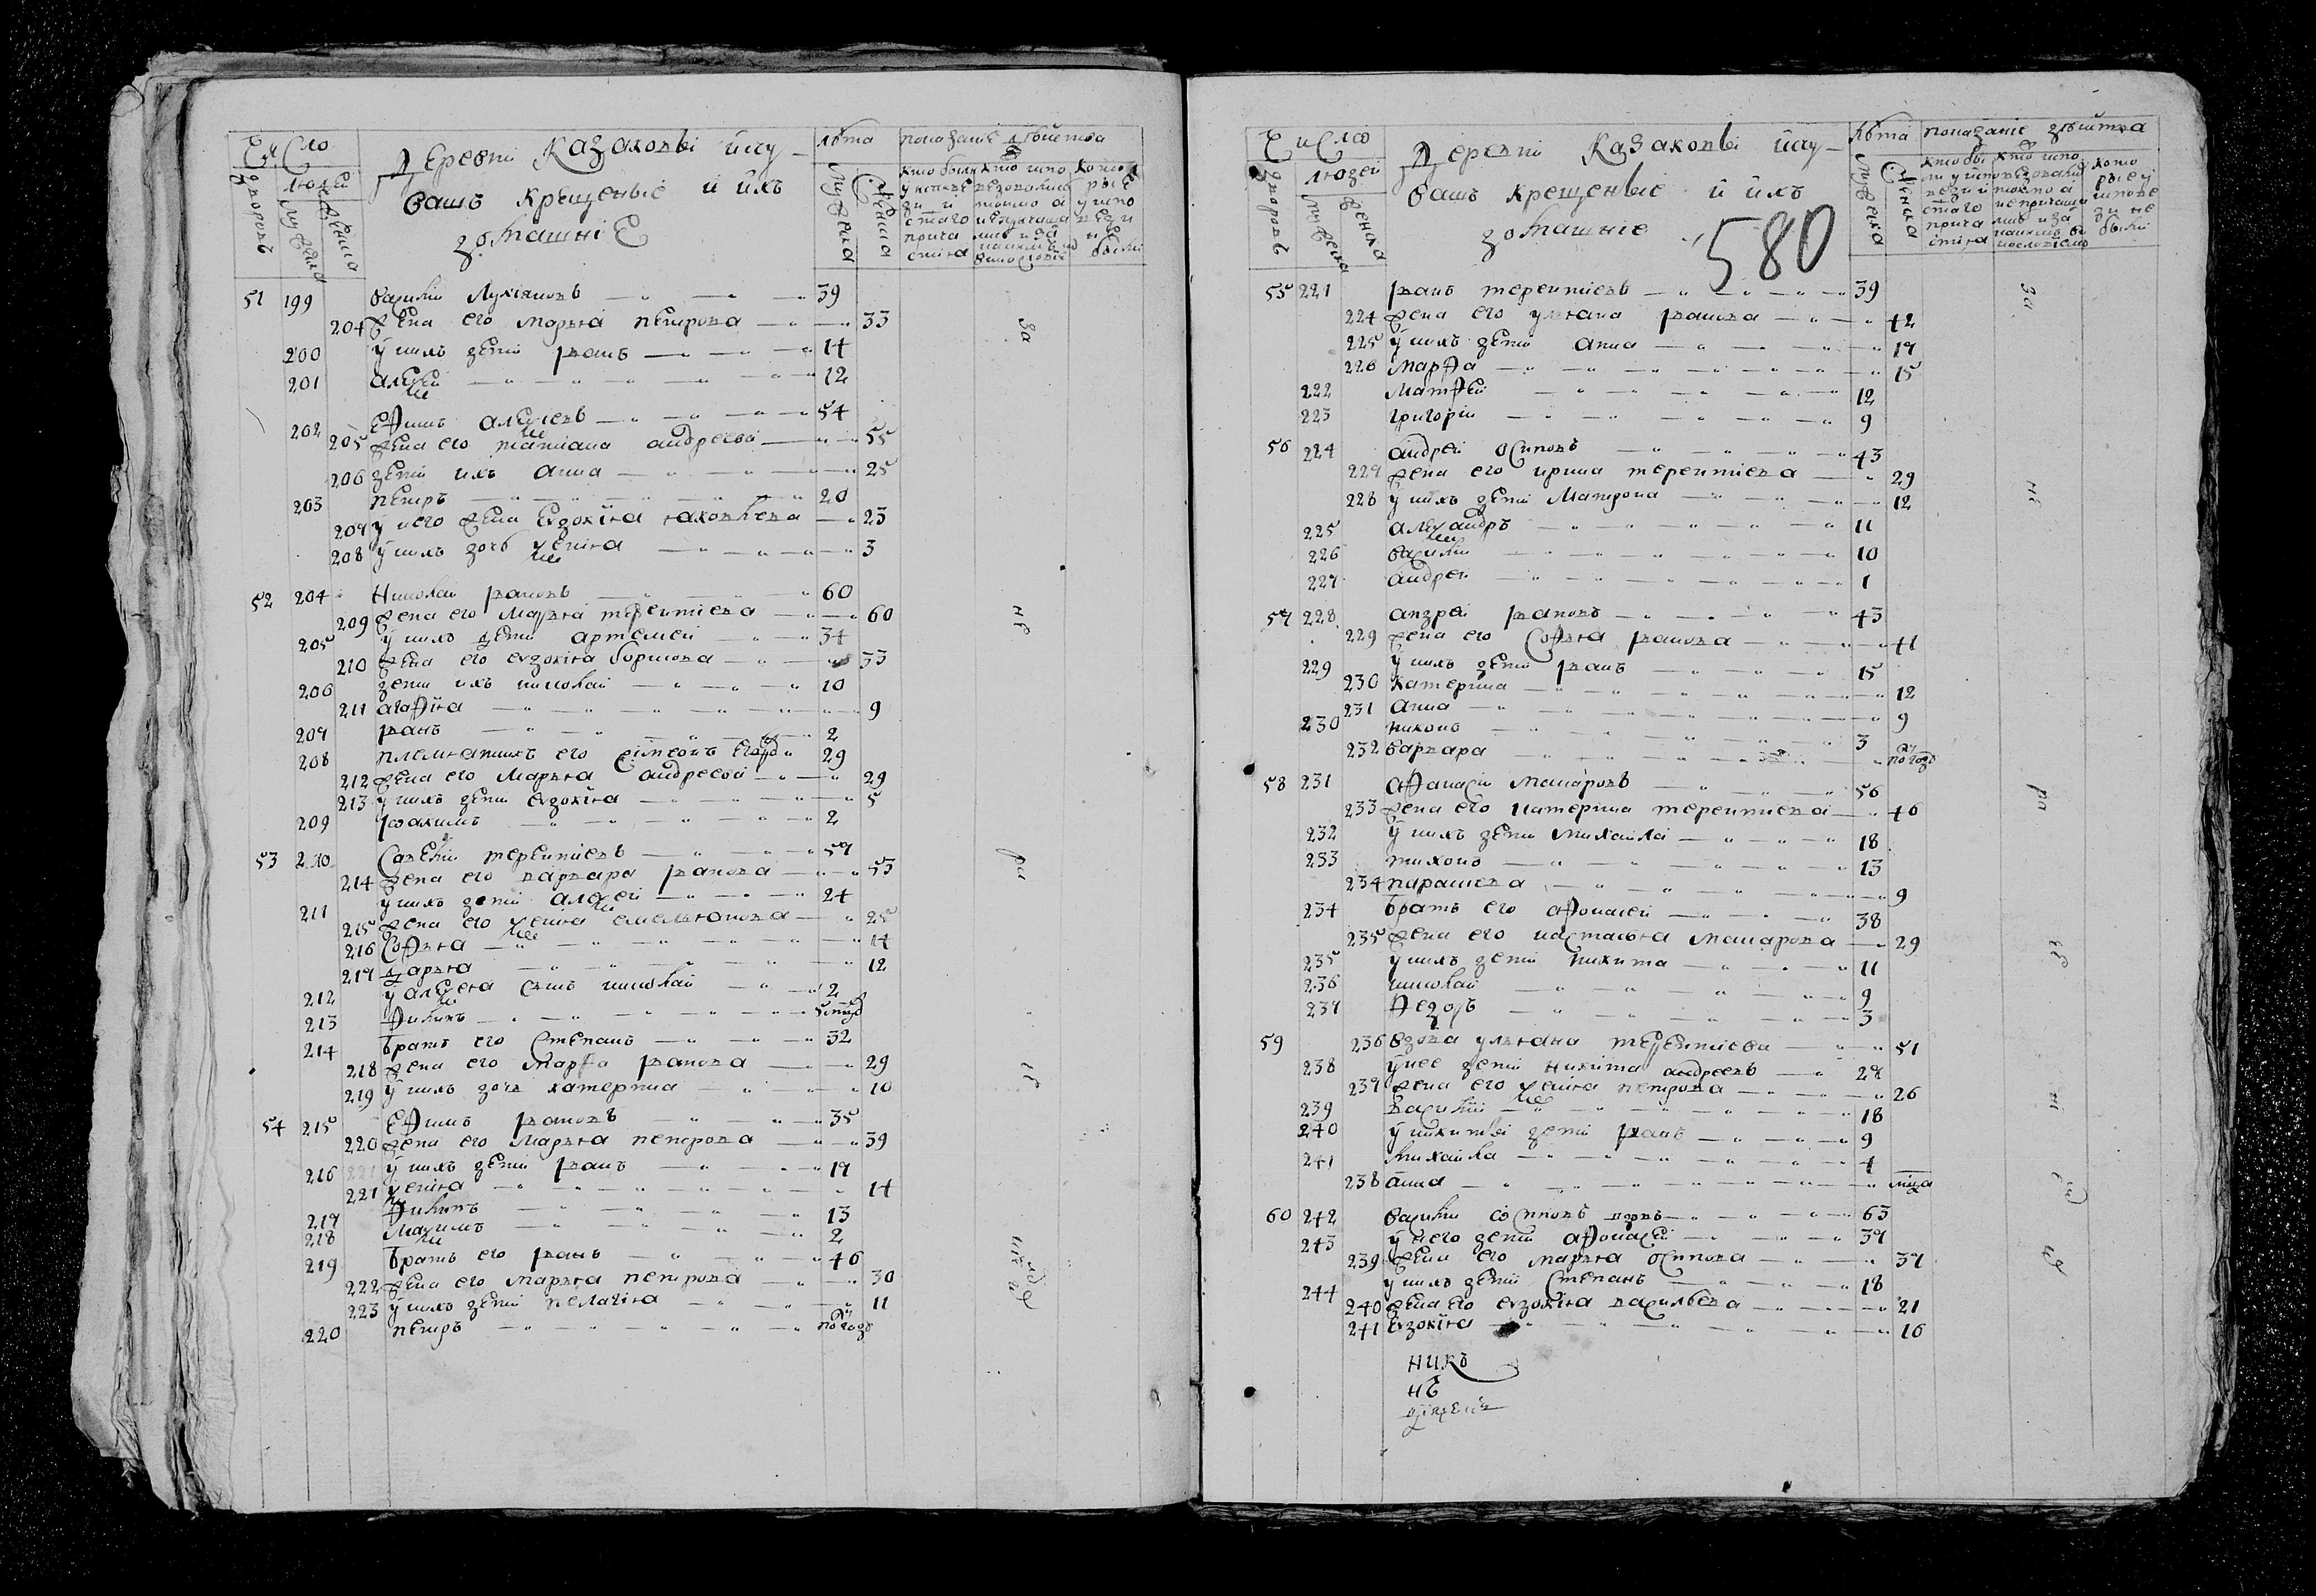 Число
Деревни Казаковы ису
лѣта
показаніе действа
дворовъ
людей
вашъ крещеныіе и ихъ
мужеска
женска
домашніе
51 199 василій Лукіяновъ 39
204 жена его марья петрова 33
200 у нихъ дети іванъ 14
201 алексей 12
202 ефимъ алексеевъ 54
205 жена его татиана андреева 55
206 дети ихъ анна 25
203 петръ 20
207 у него жена евдокія яковлева 23
208 у нихъ дочь ксенія 3
52 204 николай івановъ 60
209 жена его марья терентиева 60
205 у нихъ дети артемей 34
210 жена его евдокія борисова 33
206 дети ихъ николай 10
211 агафія 9
207 іванъ 2
208 племянникъ его симеонъ 29
212 жена его марья андреева 29
213 у нихъ дети евдокія 5
209 іоакимъ 2
53 210 савелій терентиевъ 57
214 жена его варвара іванова 53
211 у нихъ дети алексей 24
215 жена его ксенія емельянова 25
216 софья 14
217 дарья 12
212 у алексея сынъ николай 2
213 филипъ
214 братъ его степанъ 32
218 жена его марфа іванова 29
219 у нихъ дочь катерина 10
54 215 ефимъ івановъ 35
220 жена его марья петрова 39
216 у нихъ дети іванъ 17
221 ксенія 14
217 филипъ 13
218 максимъ 2
219 братъ его іванъ 46
222 жена его марья петрова 30
223 у нихъ дети пелагія 11
220 петръ полгода
Число
Деревни Казаковы ису
лѣта
показаніе действа
дворовъ
людей
вашъ крещеныіе и ихъ
мужеска
женска
домашніе
580
55 221 іванъ терентиевъ 39
224 жена его ульяна іванова 42
225 у нихъ дети анна 17
226 марфа 15
222 матфей 12
223 григорій 9
56 224 андрей осиповъ 43
227 жена его ирина терентиева 29
228 у нихъ дети матрона 12
225 александръ 11
226 василій 10
227 андрей 1
57 228 андрей івановъ 43
229 жена его софья іванова 41
229 у нихъ дети іванъ 15
230 катерина 12
231 анна 9
230 никонъ 3
232 варвара полгода
58 231 афанасій макаровъ 56
233 жена его катерина терентиева 46
232 у нихъ дети михаила 18
233 тихонъ 13
234 парасшева 9
234 братъ его афонасей 38
235 жена его настасья макарова 29
235 у нихъ дети никита 11
236 николай 9
237 федоръ 3
59 236 вдова ульяна терентиева 51
238 у нее дети никита андреевъ 27
237 жена его ксенія петрова 26
239 василій 18
240 у никиты дети іванъ 9
241 михаила 4
238 анна
60 242 василій осиповъ вдовъ 63
243 у него дети афонасей 37
239 жена его марья осипова 37
244 у нихъ дети степанъ 18
240 жена его евдокія васильева 21
241 евдокія 16